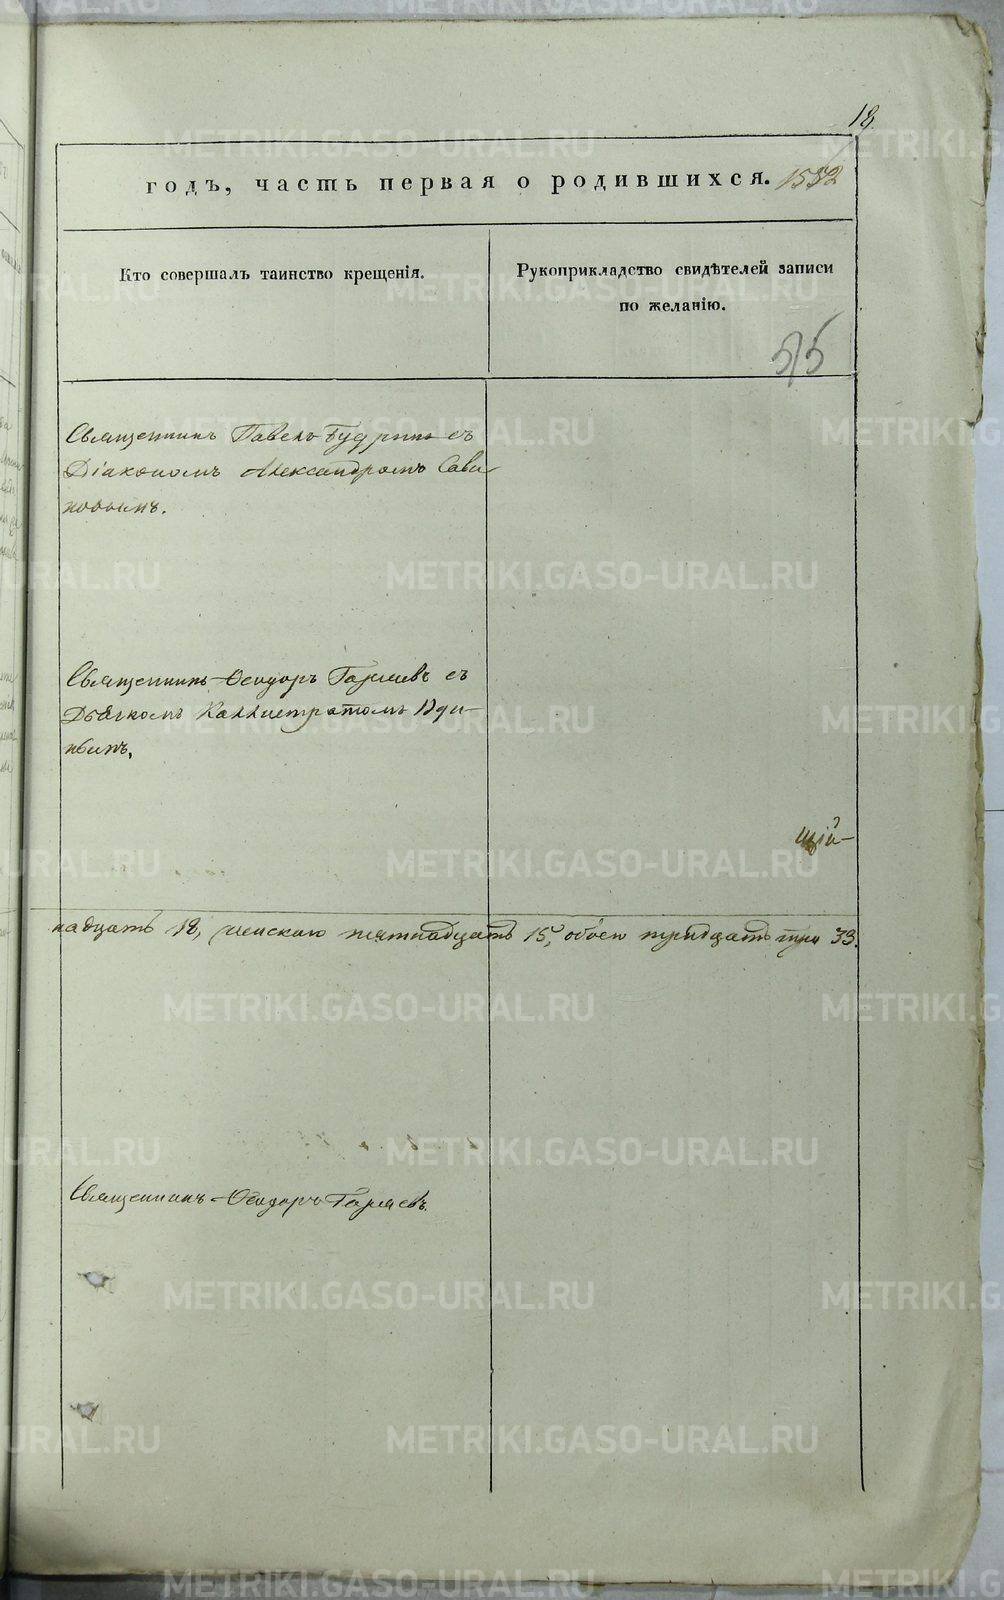 18
годъ, часть первая о родившихся. 1552
Кто совершалъ таинство крещенія.
Рукоприкладство свидѣтелей записи
по желанію.
55
Священникъ Павелъ Будринъ съ
Діакономъ Александромъ Сави
новымъ.
Священникъ Ѳеодоръ Гаряевъ съ
Дьячкомъ Каллистратомъ Уди-
надцать 18, женскаго пятнадцать 15, обоего тридцать три 33.
Священникъ Ѳеодоръ Гаряевъ.
METRIKI.GASO-URAL.RU